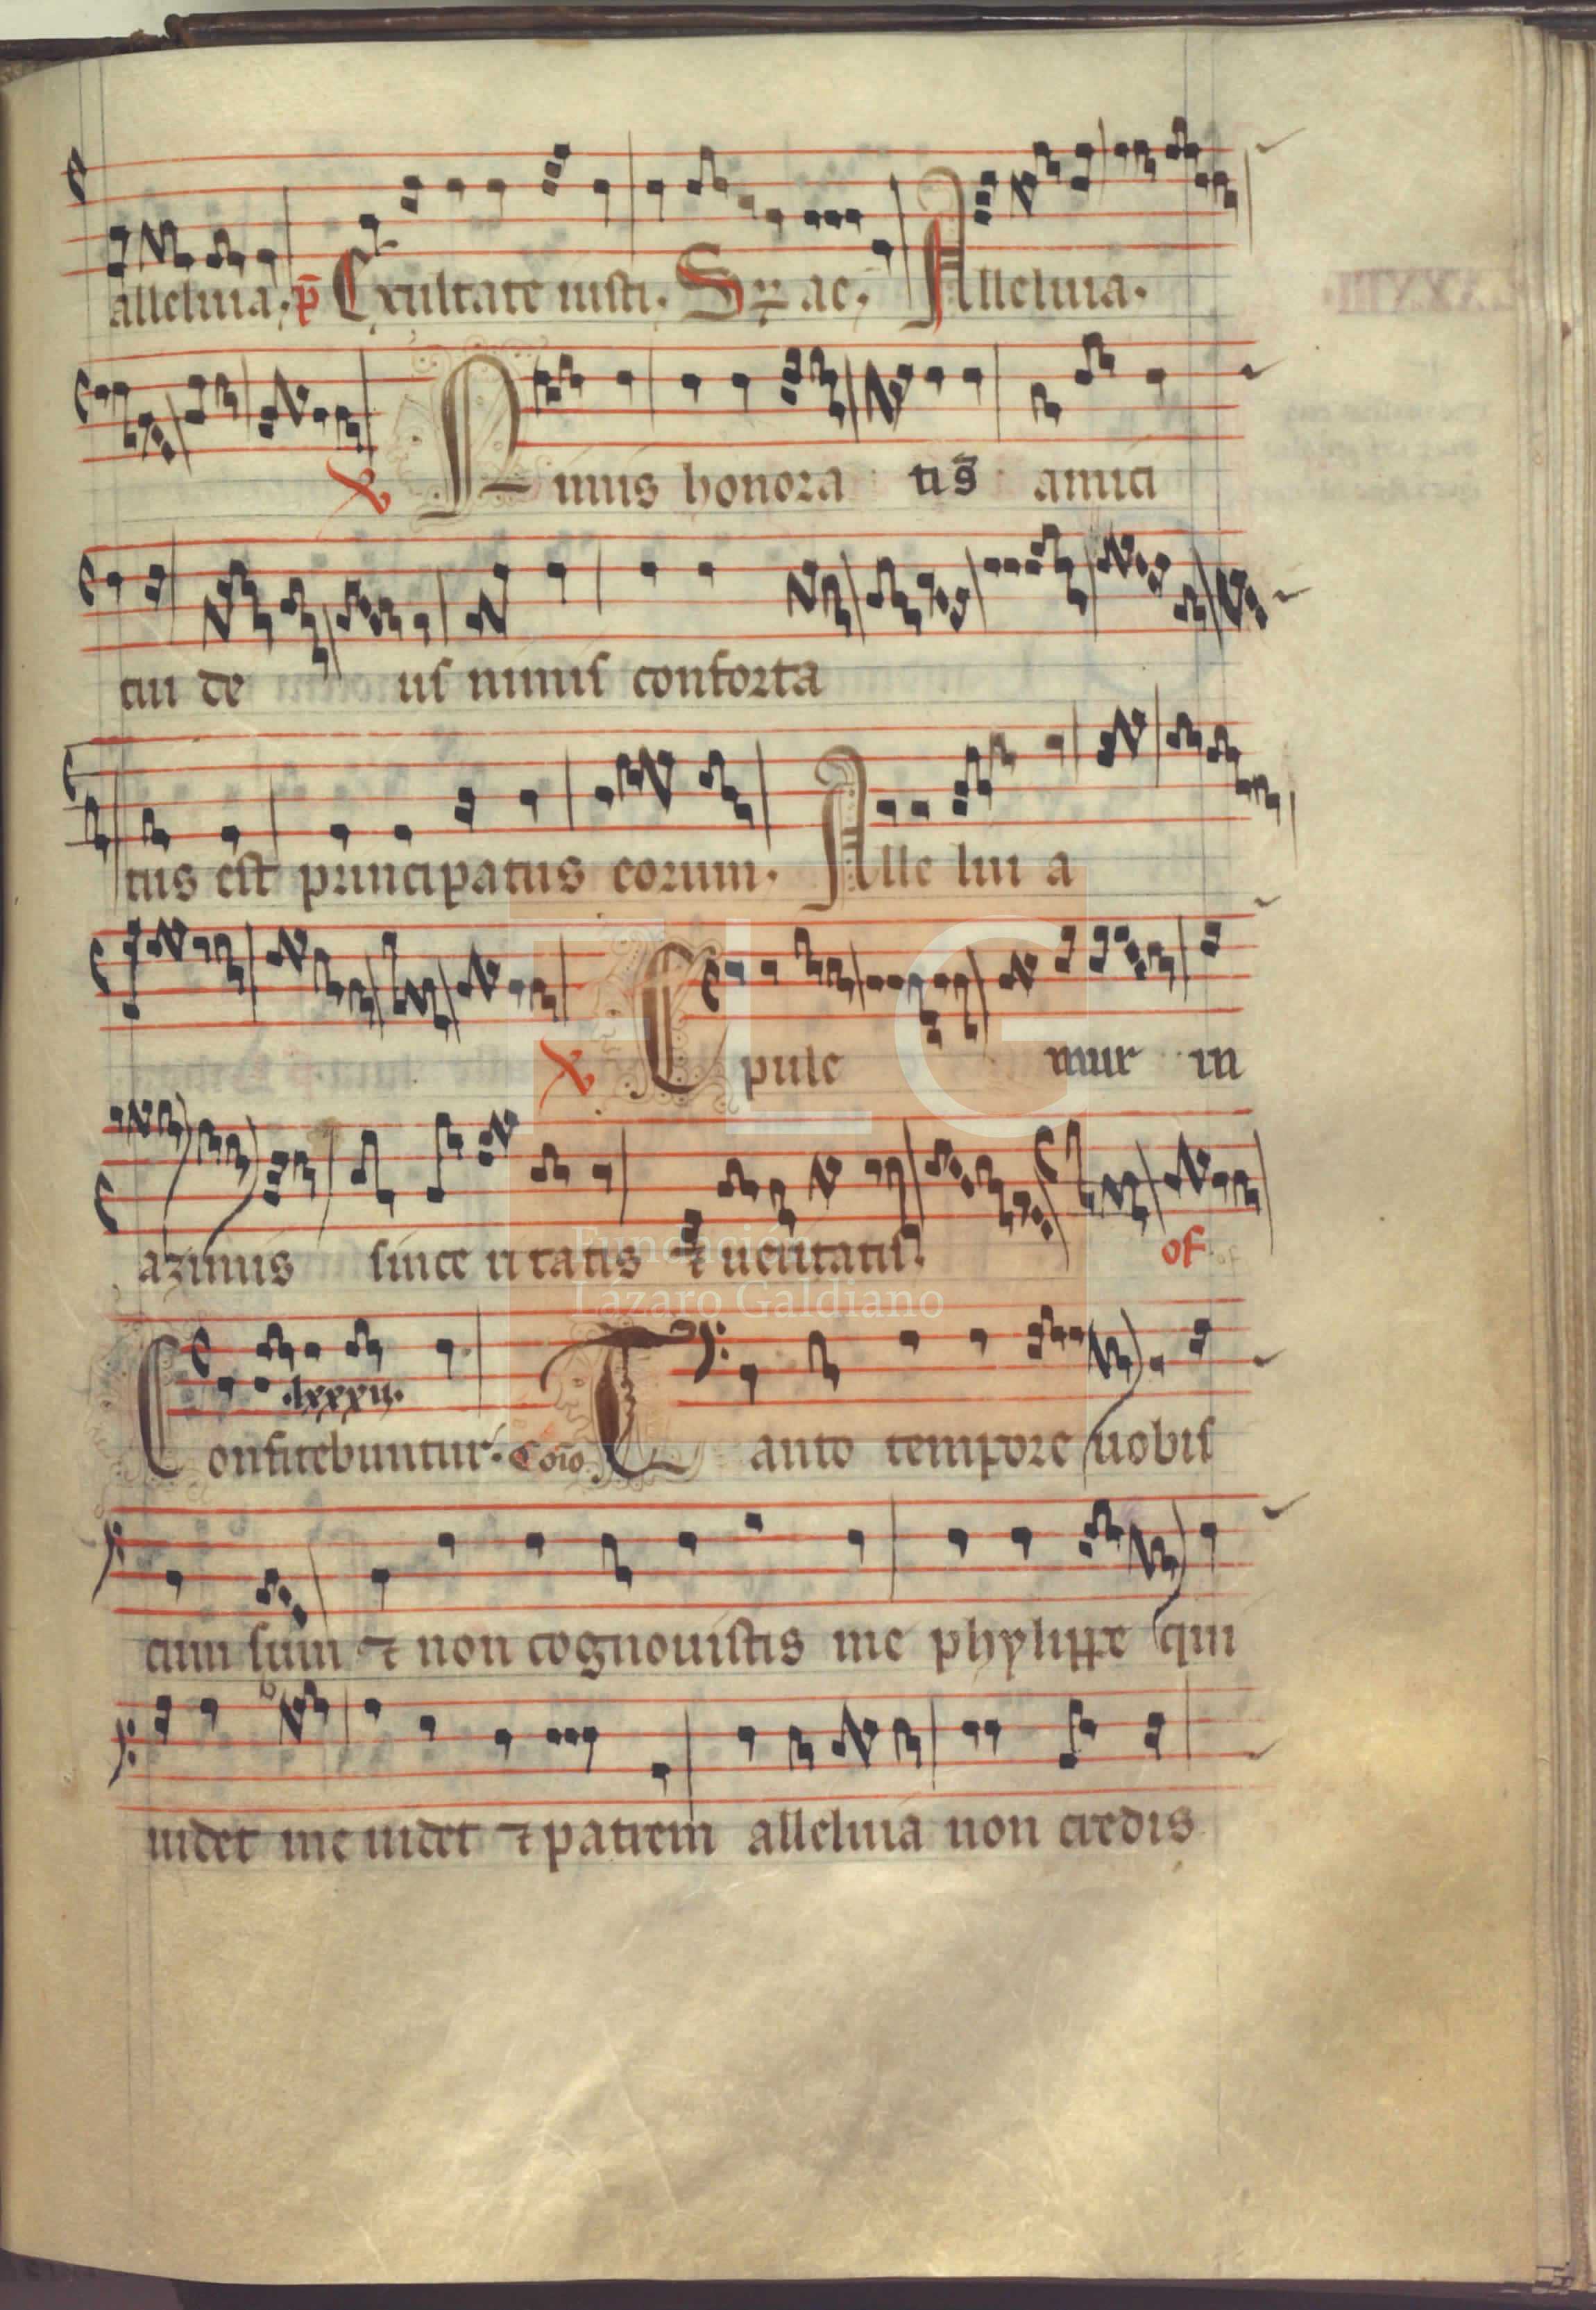 alleluia. p̄ Exultate iusti. S ae. Alleluia.
Nimis honora ti s̄ amici
tui de us nimis conforta
tus est principatus eorum. Alle lui a
Epule mur in
azimis since ri tatis ⁊ ueritatis. of
.lxxxii.
Confitebuntur. Coīo Tanto tempore uobis
cum sum ⁊ non cognouistis me phylippe qui
uidet me uidet ⁊ patrem alleluia non credis
FLG
Fundación
Lázaro Galdiano